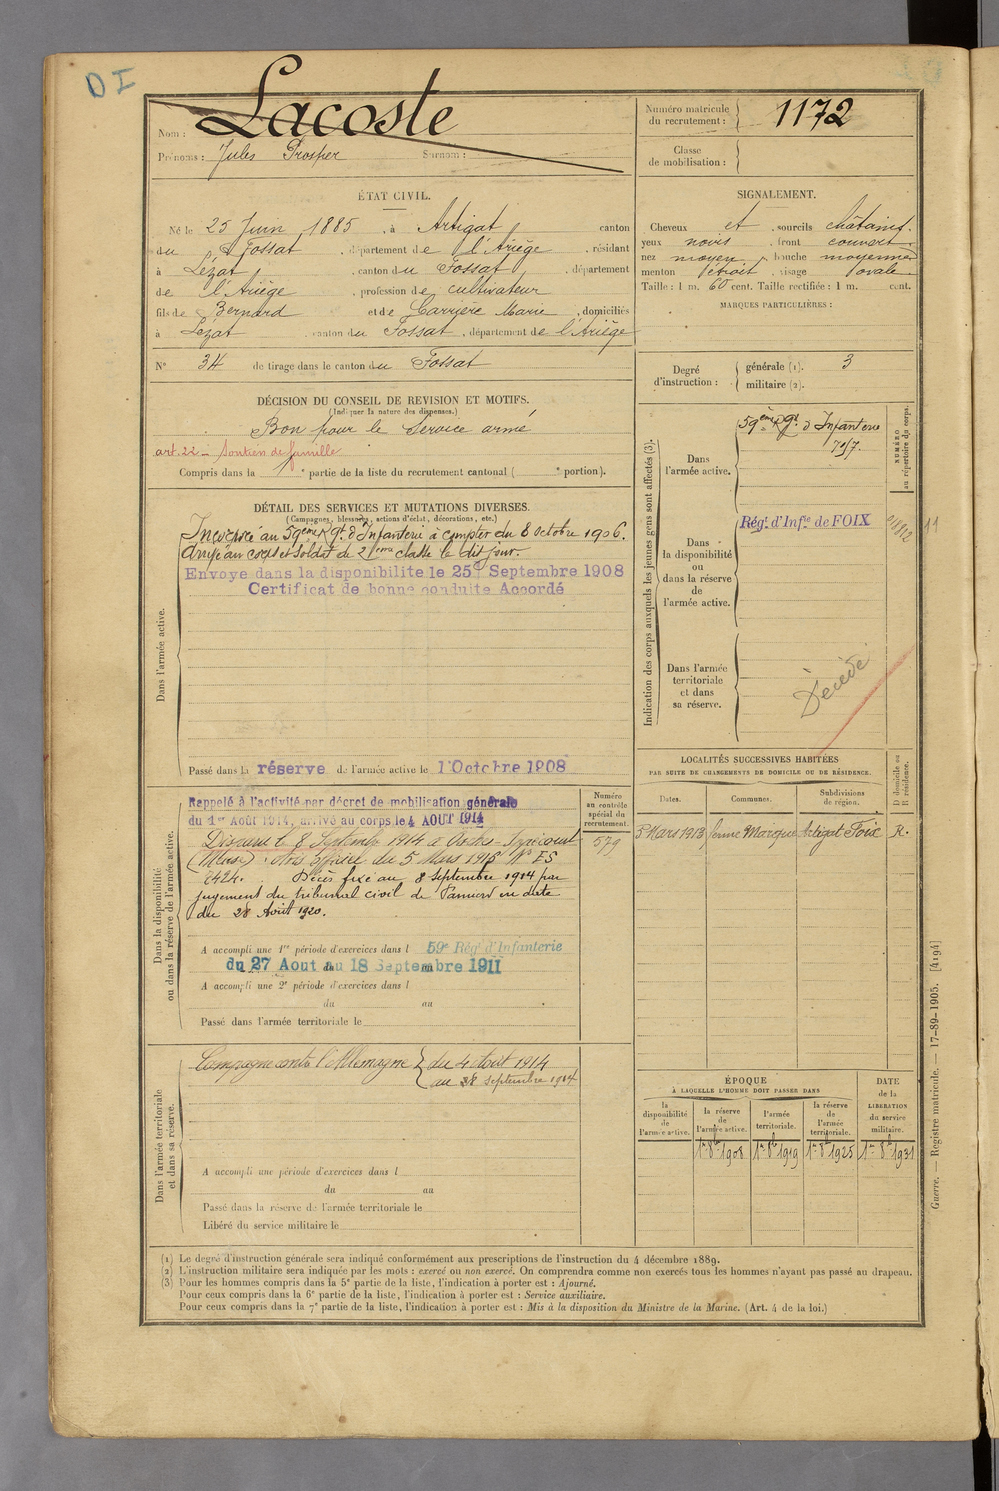 DI
Nom : Lacoste
Prénoms : Jules Prosper Surnom :
Numéro matricule
du recrutement : 1172
Classe
de mobilisation :
ÉTAT CIVIL.
Né le 25 Juin 1885, à Artigat canton
du Fossat, département de l'Ariège, résidant
à Lézat, canton du Fossat, département
de l'Ariège, profession de cultivateur
fils de Bernard et de Carrière Marie, domiciliés
à Lézat canton du Fossat, département de l'Ariège
N° 34 de tirage dans le canton du Fossat
SIGNALEMENT.
Cheveux et sourcils châtains.
yeux noirs, front couvert.
nez moyen, bouche moyenne
menton étroit, visage ovale.
Taille : 1 m. 60 cent. Taille rectifiée : 1 m. cent.
MARQUES PARTICULIÈRES :
DÉCISION DU CONSEIL DE REVISION ET MOTIFS.
(Indiquer la nature des dispenses.)
Bon pour le Service armé
art. 22 - Soutien de famille
Compris dans la e partie de la liste du recrutement cantonal ( e portion).
Degré
d'instruction :
générale (1). 3
militaire (2).
DÉTAIL DES SERVICES ET MUTATIONS DIVERSES.
(Campagnes, blessures, actions d'éclat, décorations, etc.)
Dans l'armée active.
Incorporé au 59ème Rgt d'Infanterie à compter du 8 Octobre 1906.
Arrivé au corps et soldat de 2ème classe le dit jour.
Envoye dans la disponibilite le 25 Septembre 1908
Certificat de bonne conduite Accordé
Passé dans la réserve de l'armée active le 1 Octobre 1908
Indication des corps auxquels les jeunes gens sont affectés (3).
NUMÉRO
au répertoire du corps.
Dans
l'armée active.
59ème Rgt d'Infanterie
Dans
la disponibilité
ou
dans la réserve
de
l'armée active.
Régt d'Infie de FOIX
Dans l'armée
territoriale
et dans
sa réserve.
Décédé
LOCALITÉS SUCCESSIVES HABITÉES
PAR SUITE DE CHANGEMENTS DE DOMICILE OU DE RÉSIDENCE.
Dates. Communes. Subdivisions
de région.
D domicile ou
R résidence.
5 Mars 1913 Artigat Foix R.
Dans la disponibilité
ou dans la réserve de l'armée active.
Numéro
au contrôle
spécial du
recrutement.
579
Rappelé à l'activité par décret de mobilisation générale
du 1er Août 1914, arrivé au corps le 4 AOUT 1914
Disparu le 8 Septembre 1914 à
(Meuse). Avis officiel du 5 Mars 1915 N° ES
2424. Décès fixé au 8 septembre 1914 par
jugement du tribunal civil de Pamiers en date
du 28 Août 1920.
A accompli une 1re période d'exercices dans l 59e Régt d'Infanterie
du 27 Aout au 18 Septembre 1911
A accompli une 2e période d'exercices dans l
du au
Passé dans l'armée territoriale le
Dans l'armée territoriale
et dans sa réserve.
Campagne contre l'Allemagne { du 4 Août 1914
au 28 septembre 1914
A accompli une période d'exercices dans l
du au
Passé dans la réserve de l'armée territoriale le
Libéré du service militaire le
ÉPOQUE
À LAQUELLE L'HOMME DOIT PASSER DANS
la
disponibilité
de
l'armée active.
la réserve
de
l'armée active.
l'armée
territoriale.
la réserve
de
l'armée
territoriale.
DATE
de la
LIBÉRATION
du service
militaire.
1er 8bre 1908 1er 8bre 1919 1er 8bre 1925 1er 8bre 1931
Guerre. — Registre matricule. — 17-89-1905. [4194]
(1) Le degré d'instruction générale sera indiqué conformément aux prescriptions de l'instruction du 4 décembre 1889.
(2) L'instruction militaire sera indiquée par les mots : exercé ou non exercé. On comprendra comme non exercés tous les hommes n'ayant pas passé au drapeau.
(3) Pour les hommes compris dans la 5e partie de la liste, l'indication à porter est : Ajourné.
Pour ceux compris dans la 6e partie de la liste, l'indication à porter est : Service auxiliaire.
Pour ceux compris dans la 7e partie de la liste, l'indication à porter est : Mis à la disposition du Ministre de la Marine. (Art. 4 de la loi.)